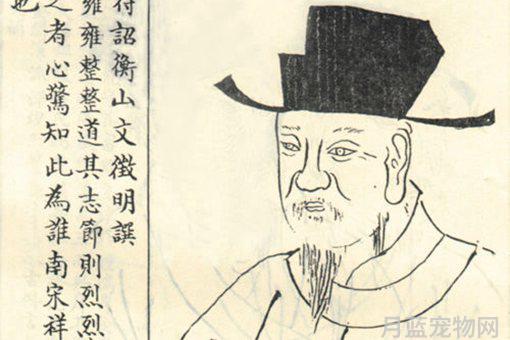 待詔衡山文徵明譔
雍雍整整道其志節則烈烈
之者心驚知此為誰南宋祥
也
月蓝宠物网